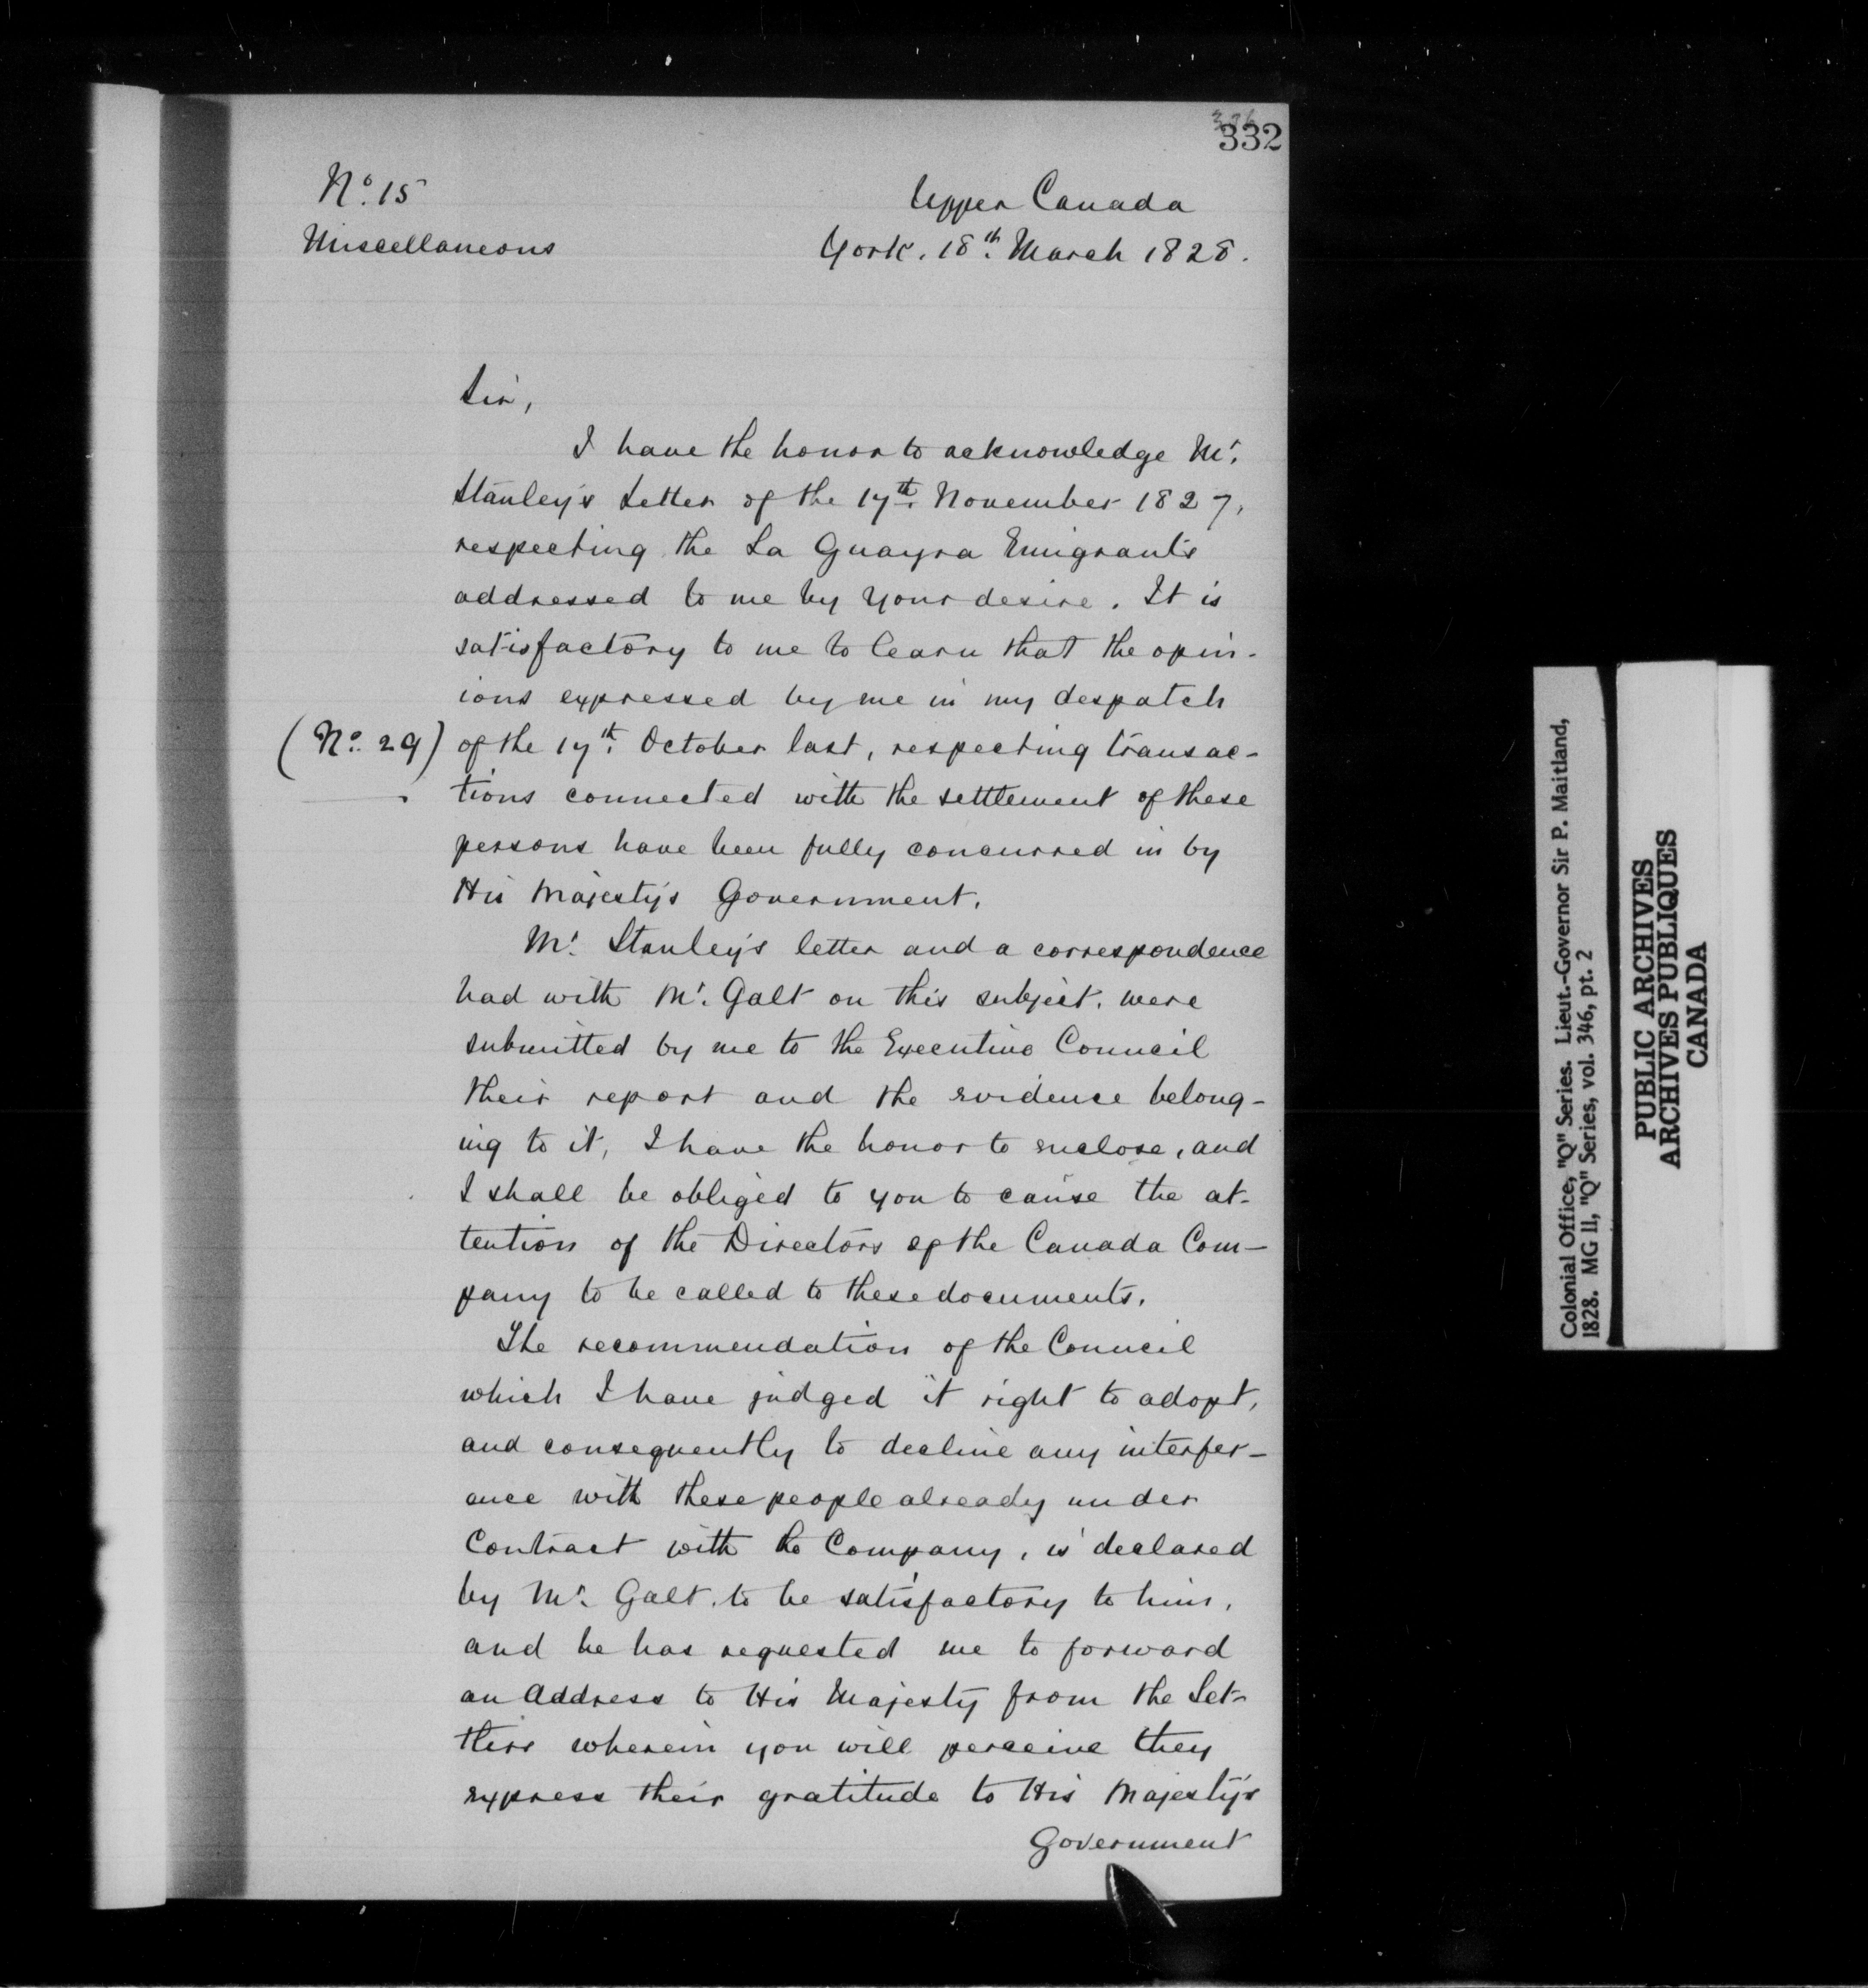 332
No. 15
Miscellaneous
Upper Canada
York. 18th. March 1828.
Sir,
I have the honor to acknowledge Mr.
Stanley's Letter of the 17th. November 1827,
respecting the La Guayra Emigrants
addressed to me by your desire. It is
satisfactory to me to learn that the opin-
ions expressed by me in my despatch
(No. 29) of the 17th. October last, respecting transac-
tions connected with the settlement of these
persons have been fully concurred in by
His Majesty's Government.
Mr. Stanley's letter and a correspondence
had with Mr. Galt on this subject. were
submitted by me to the Executive Council
their report and the evidence belong-
ing to it, I have the honor to enclose, and
I shall be obliged to you to cause the at-
tention of the Directors of the Canada Com-
pany to be called to these documents.
The recommendation of the Council
which I have judged it right to adopt,
and consequently to decline any interfer-
ance with these people already under
Contract with the Company, is declared
by Mr. Galt. to be satisfactory to him,
and he has requested me to forward
an Address to His Majesty from the Set-
tlers wherein you will perceive they
express their gratitude to His Majesty's
Government
Colonial Office, "Q" Series. Lieut.-Governor Sir P. Maitland,
1828. MG 11, "Q" Series, vol. 346, pt. 2
PUBLIC ARCHIVES
ARCHIVES PUBLIQUES
CANADA